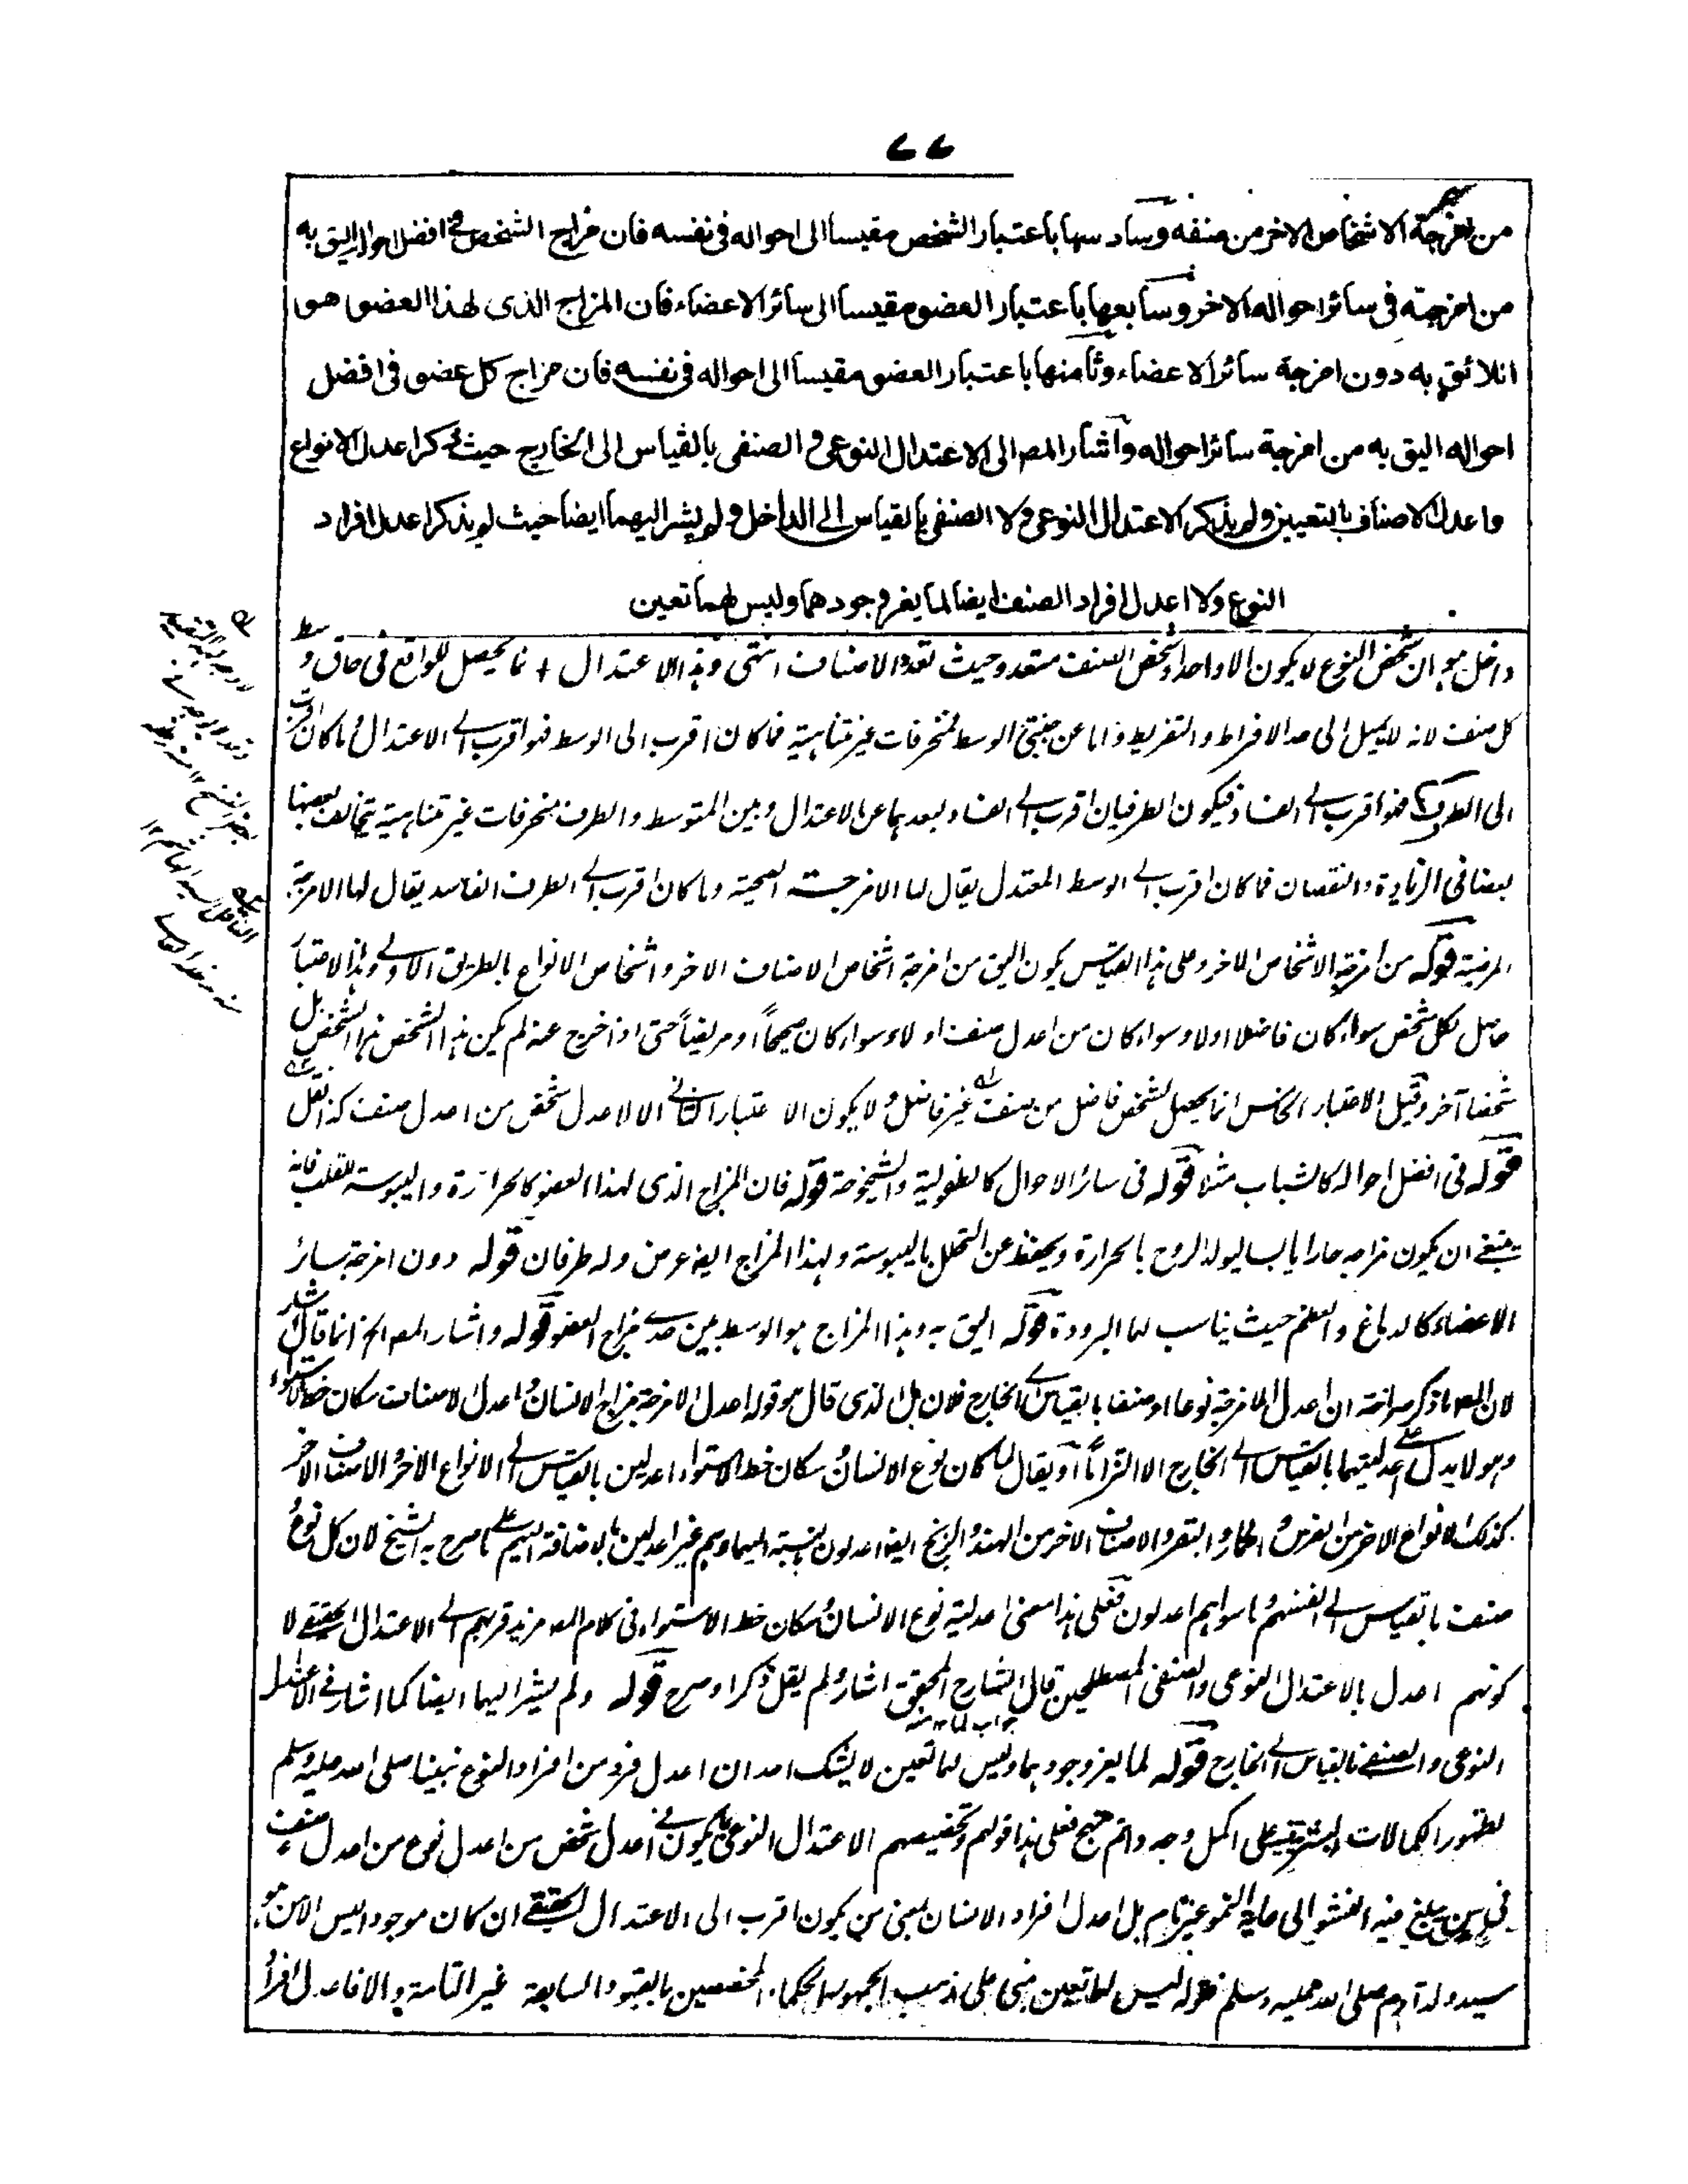 ٧٧
من امزجة الاشخاص الاخر من صنفه وسادسها باعتبار الشخص مقيسا الى احواله فى نفسه فان مزاج الشخص فى افضل احواله اليق به
من امزجته فى سائر احواله الاخر وسابعها باعتبار العضو مقيسا الى سائر الاعضاء فان المزاج الذى لهذا العضو هو
اللائق به دون امزجة سائر الاعضاء وثامنها باعتبار العضو مقيسا الى احواله فى نفسه فان مزاج كل عضو فى افضل
احواله اليق به من امزجة سائر احواله وأشار المص الى الاعتدال النوعى والصنفى بالقياس الى الخارج حيث ذكر اعدل الانواع
واعدل الاصناف بالتعيين ولم يذكر الاعتدال النوعى ولا الصنفى بالقياس الى الداخل ولم يشر اليهما ايضا حيث لم يذكر اعدل افراد
النوع ولا اعدل افراد الصنف ايضا لما يغر وجودهما وليس لهما تعين
داخل هو ان شخص النوع لا يكون الا واحدا وشخص الصنف متعدد حيث تعدد الاصناف انتهى وهذا الاعتدال انما يحصل للواقع فى حاق وسط
كل صنف لانه لا يميل الى حد الافراط والتفريط واما عن جنبتى الوسط فمنحرفات غير متناهية فما كان اقرب الى الوسط فهو اقرب الى الاعتدال وما كان اقرب
الى الطرف فهو اقرب الى الفساد فيكون الطرفيان اقرب الى الفساد لبعدهما عن الاعتدال وبين المتوسط والطرف منحرفات غير متناهية يتخالف بعضها
بعضا فى الزيادة والنقصان فما كان اقرب الى الوسط المعتدل يقال لها الامزجة الصحية وما كان اقرب الى الطرف الفاسد يقال لها الامزجة
المرضية قوله من امزجة الاشخاص الاخر وعلى هذا القياس يكون اليق من امزجة اشخاص الاصناف الاخر واشخاص الانواع بالطريق الاولى وهذا الاعتبار
حاصل لكل شخص سواء كان فاضلا اولا وسواء كان من اعدل صنف او لا وسواء كان صحيحاً او مريضاً حتى اذا خرج عنه لم يكن هذا الشخص هذا الشخص بل
شخصا آخر وقيل الاعتبار الخامس انما يحصل لشخص فاضل من صنف غير فاضل ولا يكون الاعتبار الثانى الا لاعدل شخص من اعدل صنف كذا نقل
قوله فى افضل احواله كالشباب مثلا قوله فى سائر الاحوال كالطفولية والشيخوخة قوله فان المزاج الذى لهذا العضو كالحرارة واليبوسة للقلب فانه
ينبغى ان يكون مزاجه حارا يابسا ليولد الروح بالحرارة ويحفظ عن التحلل باليبوسة ولهذا المزاج ايضا عرض وله طرفان قوله دون امزجة سائر
الاعضاء كالدماغ والعظم حيث يناسب لهما البرودة قوله اليق به وهذا المزاج هو الوسط بين حدى مزاج العضو قوله واشار المص الخ انما قال اشار
لان المص ما ذكر صراحة ان اعدل الامزجة نوعا او صنفا بالقياس الى الخارج فلان بل الذى قال هو قوله اعدل الامزجة مزاج الانسان واعدل الاصناف سكان خط الاستواء
وهو لا يدل على اعدليتهما بالقياس الى الخارج الا التزاماً او يقال لما كان نوع الانسان وسكان خط الاستواء اعدلين بالقياس الى الانواع الاخر والاصناف الاخر
كذلك الانواع الاخر من الفرس والحمار والبقر والاصناف الاخر من الهند والزنج ايضا اعدلون بالنسبة اليهما وهم غير اعدلين بالاضافة اليهم على ما صرح به الشيخ لان كل نوع و
صنف بالقياس الى انفسهم وما سواهم اعدلون فعلى هذا معنى اعدلية نوع الانسان وسكان خط الاستواء فى كلام المص مزيد قربهم الى الاعتدال الحقيقى لا
كونهم اعدل بالاعتدال النوعى والصنفى المصطلحين قال الشارح المحقق اشار ولم يقل ذكر او صرح قوله ولم يشر اليهما ايضا كما اشار فى الاعتدال
النوعى والصنفى بالقياس الى الخارج قوله لما يغر وجودهما وليس لهما تعين لا يشك احد ان اعدل فرد من افراد النوع نبينا صلى الله عليه وسلم
لظهور الكمالات البشرية على اكمل وجه واتم نهج فعلى هذا قولهم وتخصيصهم الاعتدال النوعى بما يكون فى اعدل شخص من اعدل نوع من اعدل صنف
فى سن يبلغ فيه النشو الى غاية النمو غير تام بل اعدل افراد الانسان بمعنى من يكون اقرب الى الاعتدال الحقيقى ان كان موجودا ليس الا من هو
سيد ولد آدم صلى الله عليه وسلم فقوله ليس لهما تعين مبنى على مذهب الجمهور الحكماء المخصصين بالقيود السابعة غير التامة والا فاعدل افراد